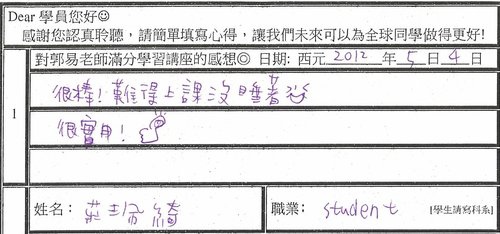 Dear 學員您好☺
感謝您認真聆聽，請簡單填寫心得，讓我們未來可以為全球同學做得更好!
對郭易老師滿分學習講座的感想☺ 日期: 西元 2012 年 5 日 4 日
1
很棒! 難得上課沒睡著
很實用!
姓名: 莊
職業: student [學生請寫科系]